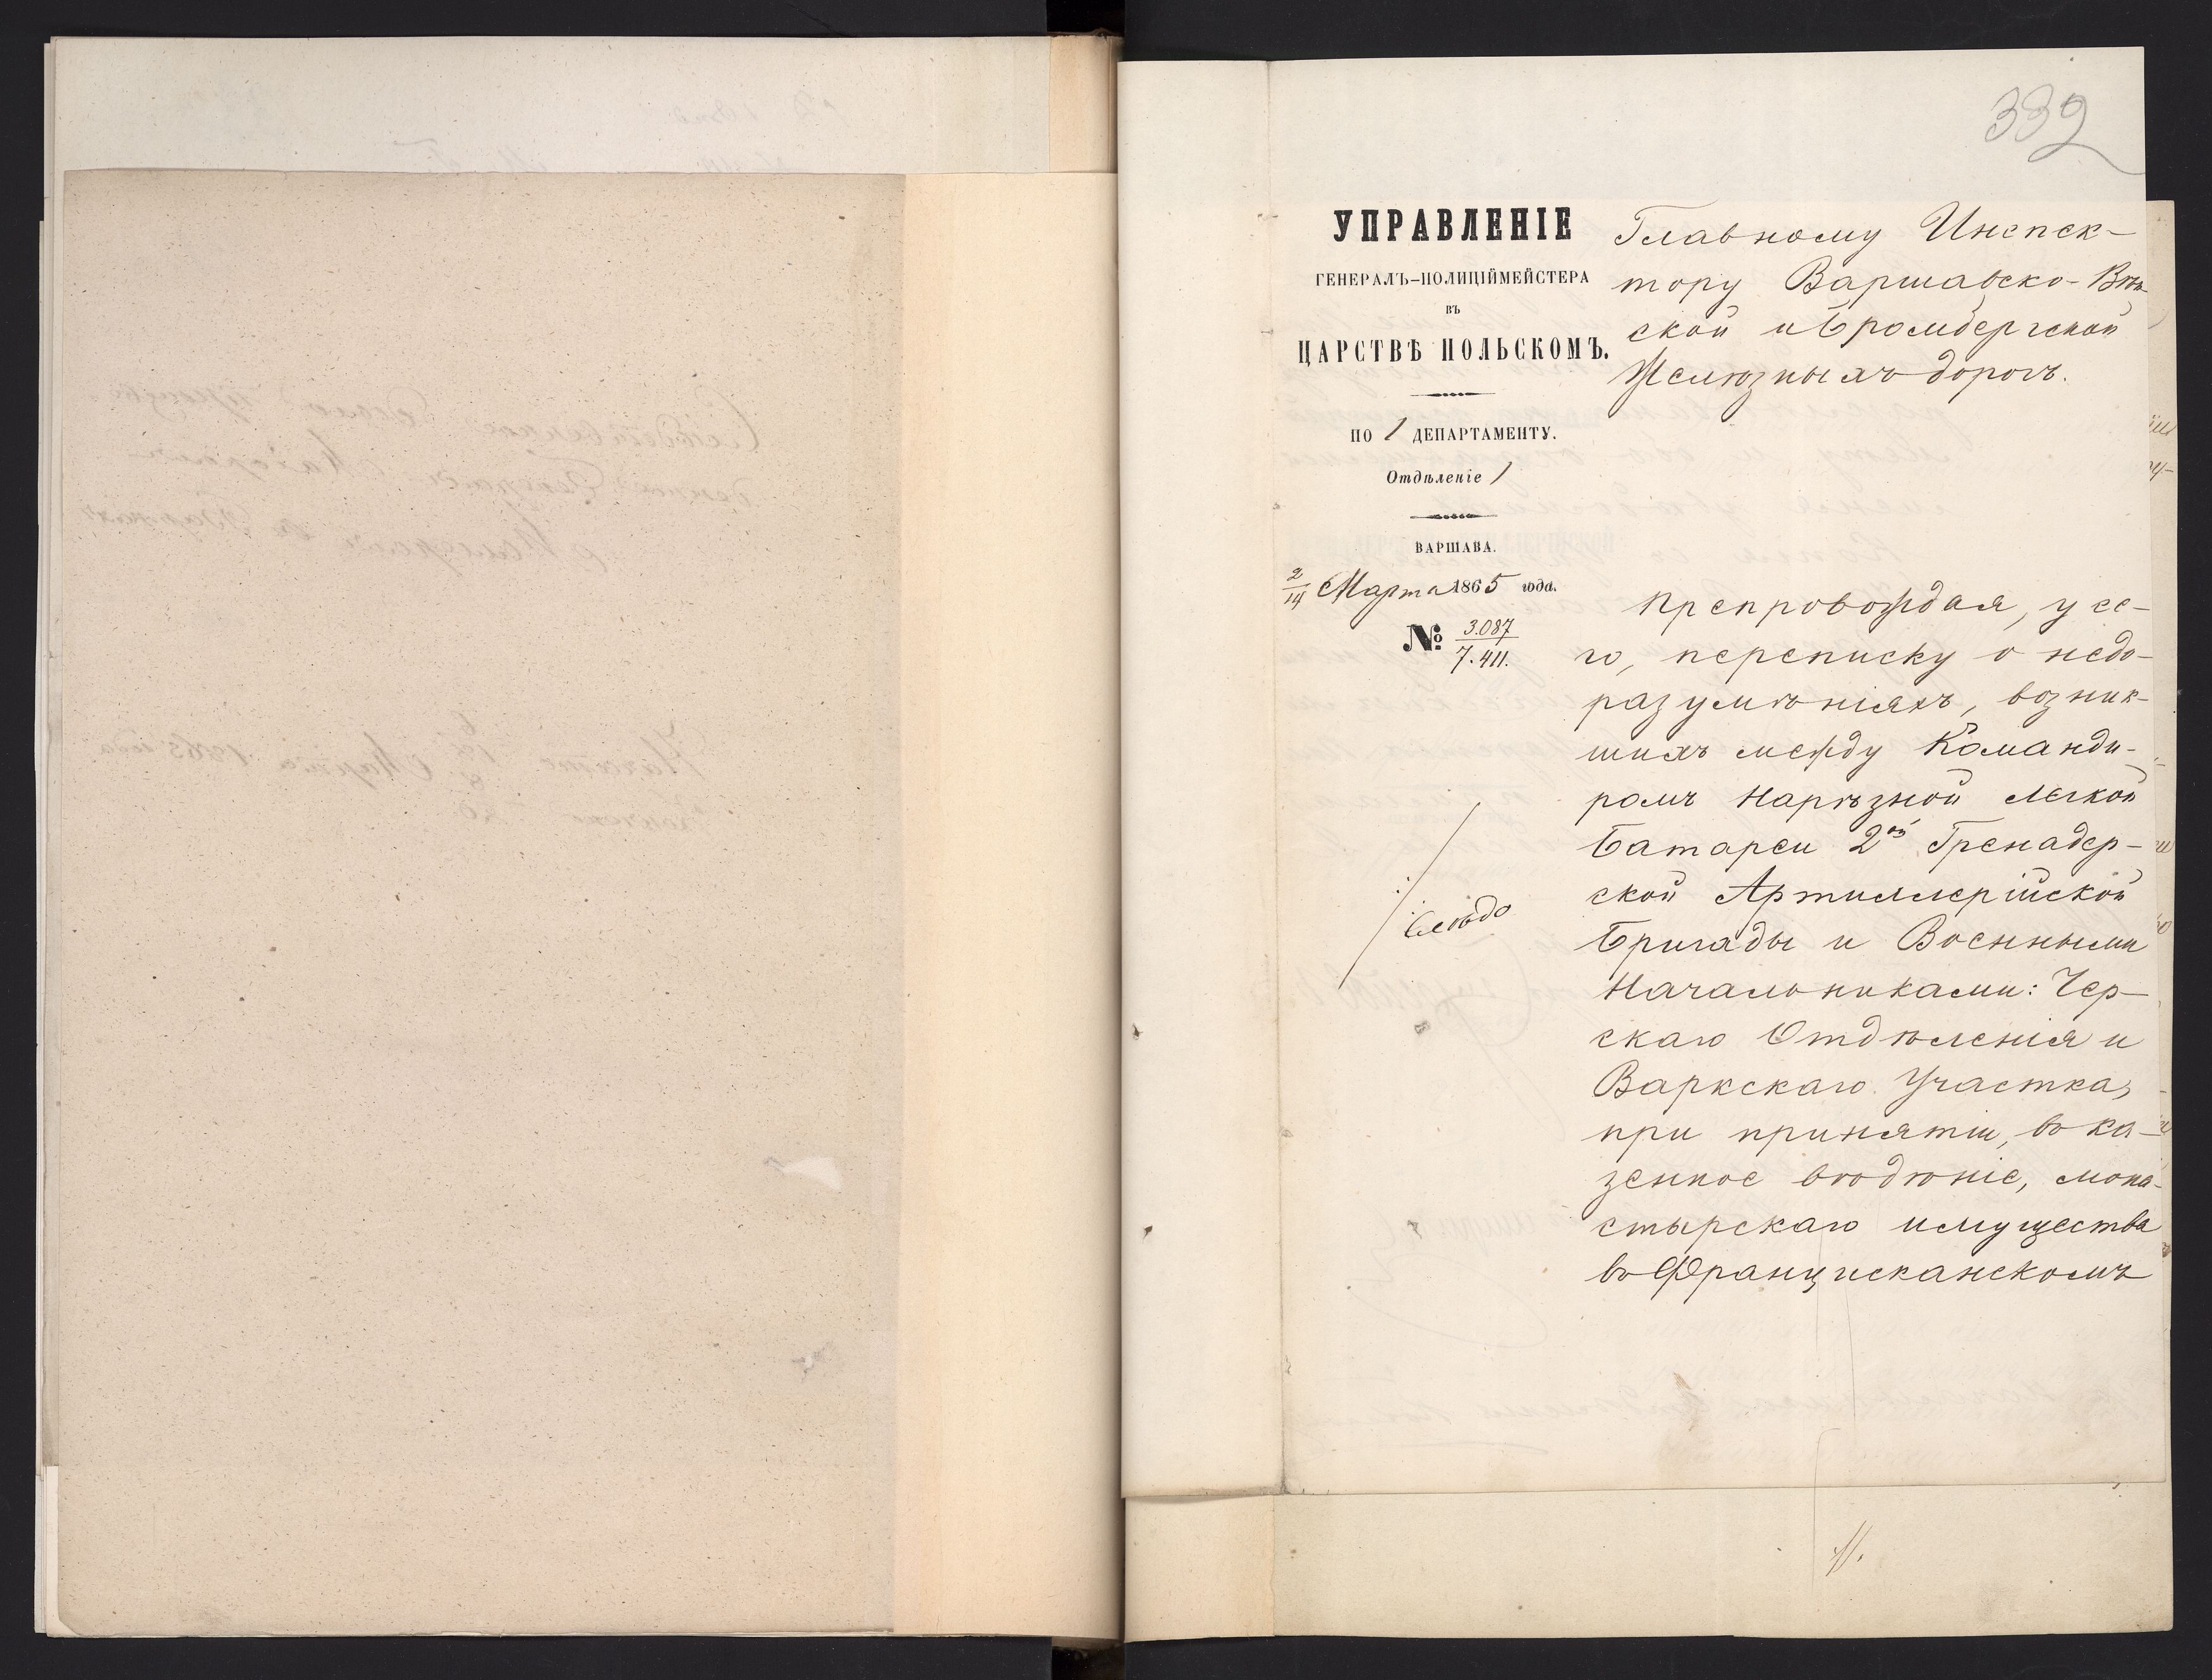 332
УПРАВЛЕНІЕ
ГЕНЕРАЛЪ-ПОЛИЦІЙМЕЙСТЕРА
ВЪ
ЦАРСТВѢ ПОЛЬСКОМЪ.
ПО 1 ДЕПАРТАМЕНТУ.
Отдѣленіе 1
ВАРШАВА.
2/14 Марта 1865 года.
№ 3.087/7.411.
Слѣдо
Главному Инспек-
тору Варшавско-Вѣн
ской и Бромбергской
Желѣзныхъ дорогъ.
Препровождая, у се-
го, переписку о недо-
разумѣніяхъ, возник-
шихъ между Команди-
ромъ Нарѣзной легкой
Батареи 2ой Гренадер-
ской Артиллерійской
Бригады и Военными
Начальниками: Чер-
скаго Отдѣленія и
Варкскаго Участка,
при принятіи, въ ка-
зенное вѣдѣніе, мона-
стырскаго имущества
въ Францисканскомъ